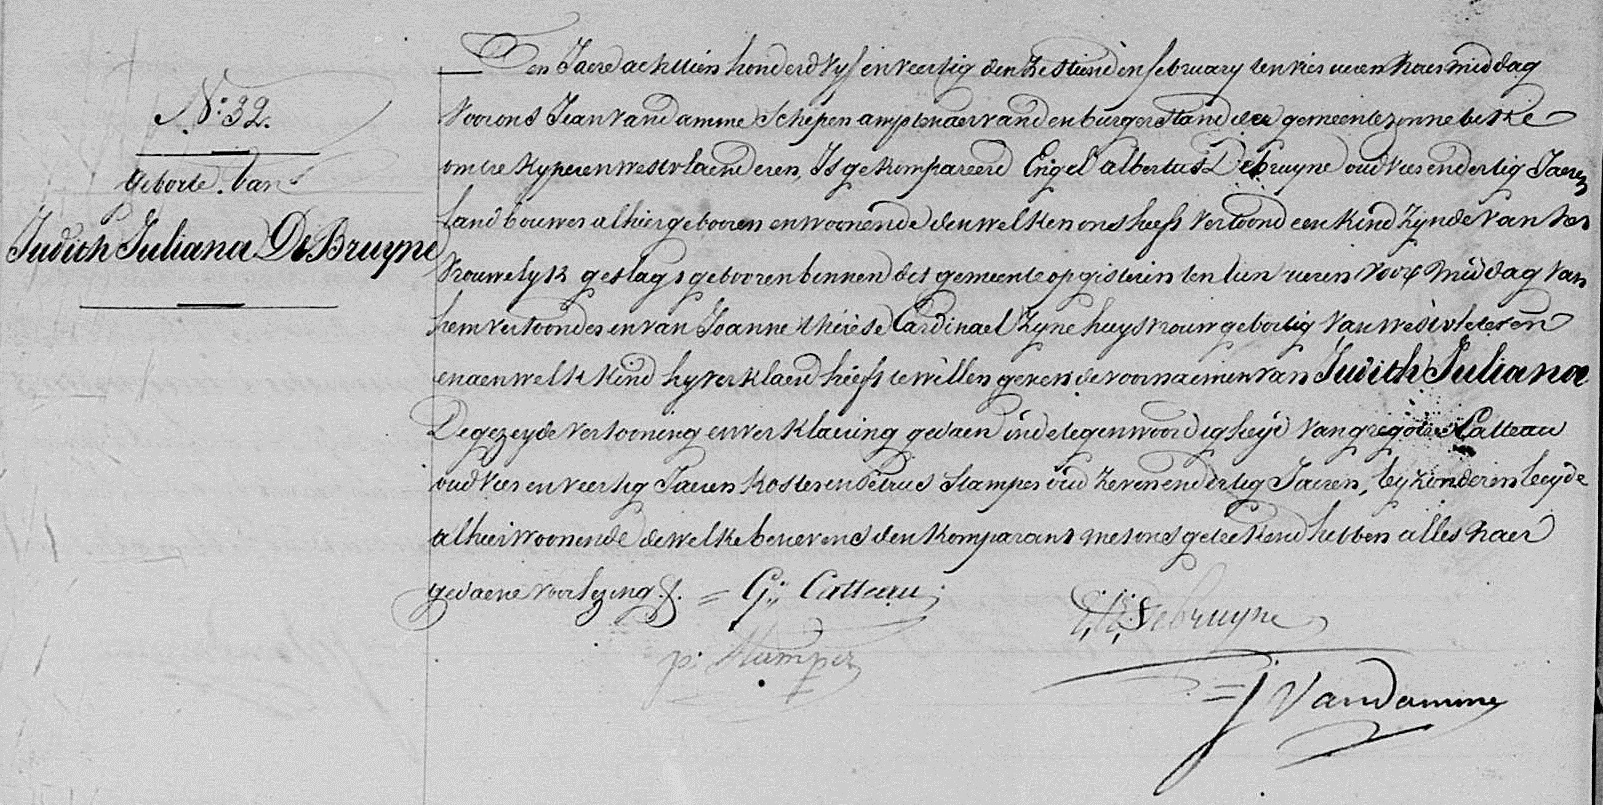 N.º 32.
Geborte van
Judith Juliana De Bruyne
Den Jaere achttien honderd vyf en veertig den zestienden february ten vier ueren naer middag
Voor ons Jean Vandamme Schepen amptenaer van den burgerstand der gemeente zonnebeke
omtrek yperen westvlaenderen, Is gekompareerd Engel albertus Debruyne oud vier en dertig Jaeren
Landbouwer alhier gebooren en woonende den welken ons heeft vertoond een kind zynde van het
Vrouwelyk geslagt gebooren binnen des gemeente op gisteren ten tien ueren voor middag van
hem vertoonder en van Joanne thérèse Cardinael zyne huysvrouw geboitig van westvleteren
en aen welk kind hy verklaerd heeft te willen geven de voornaemen van Judith Juliana
De gezeyde vertooning en verklaering gedaen in de tegenwoordigheyd van gregoire Catteau
oud vier en veertig Jaeren koster en Petrus Stamper oud zeven en dertig Jaeren, byzonderen beyde
alhier woonende dewelke benevens den komparant met ons geteekend hebben alles naer
gedaene voorlezing. = G: Catteau
E: A: Debruyne
p: Stamper
= J Vandamme